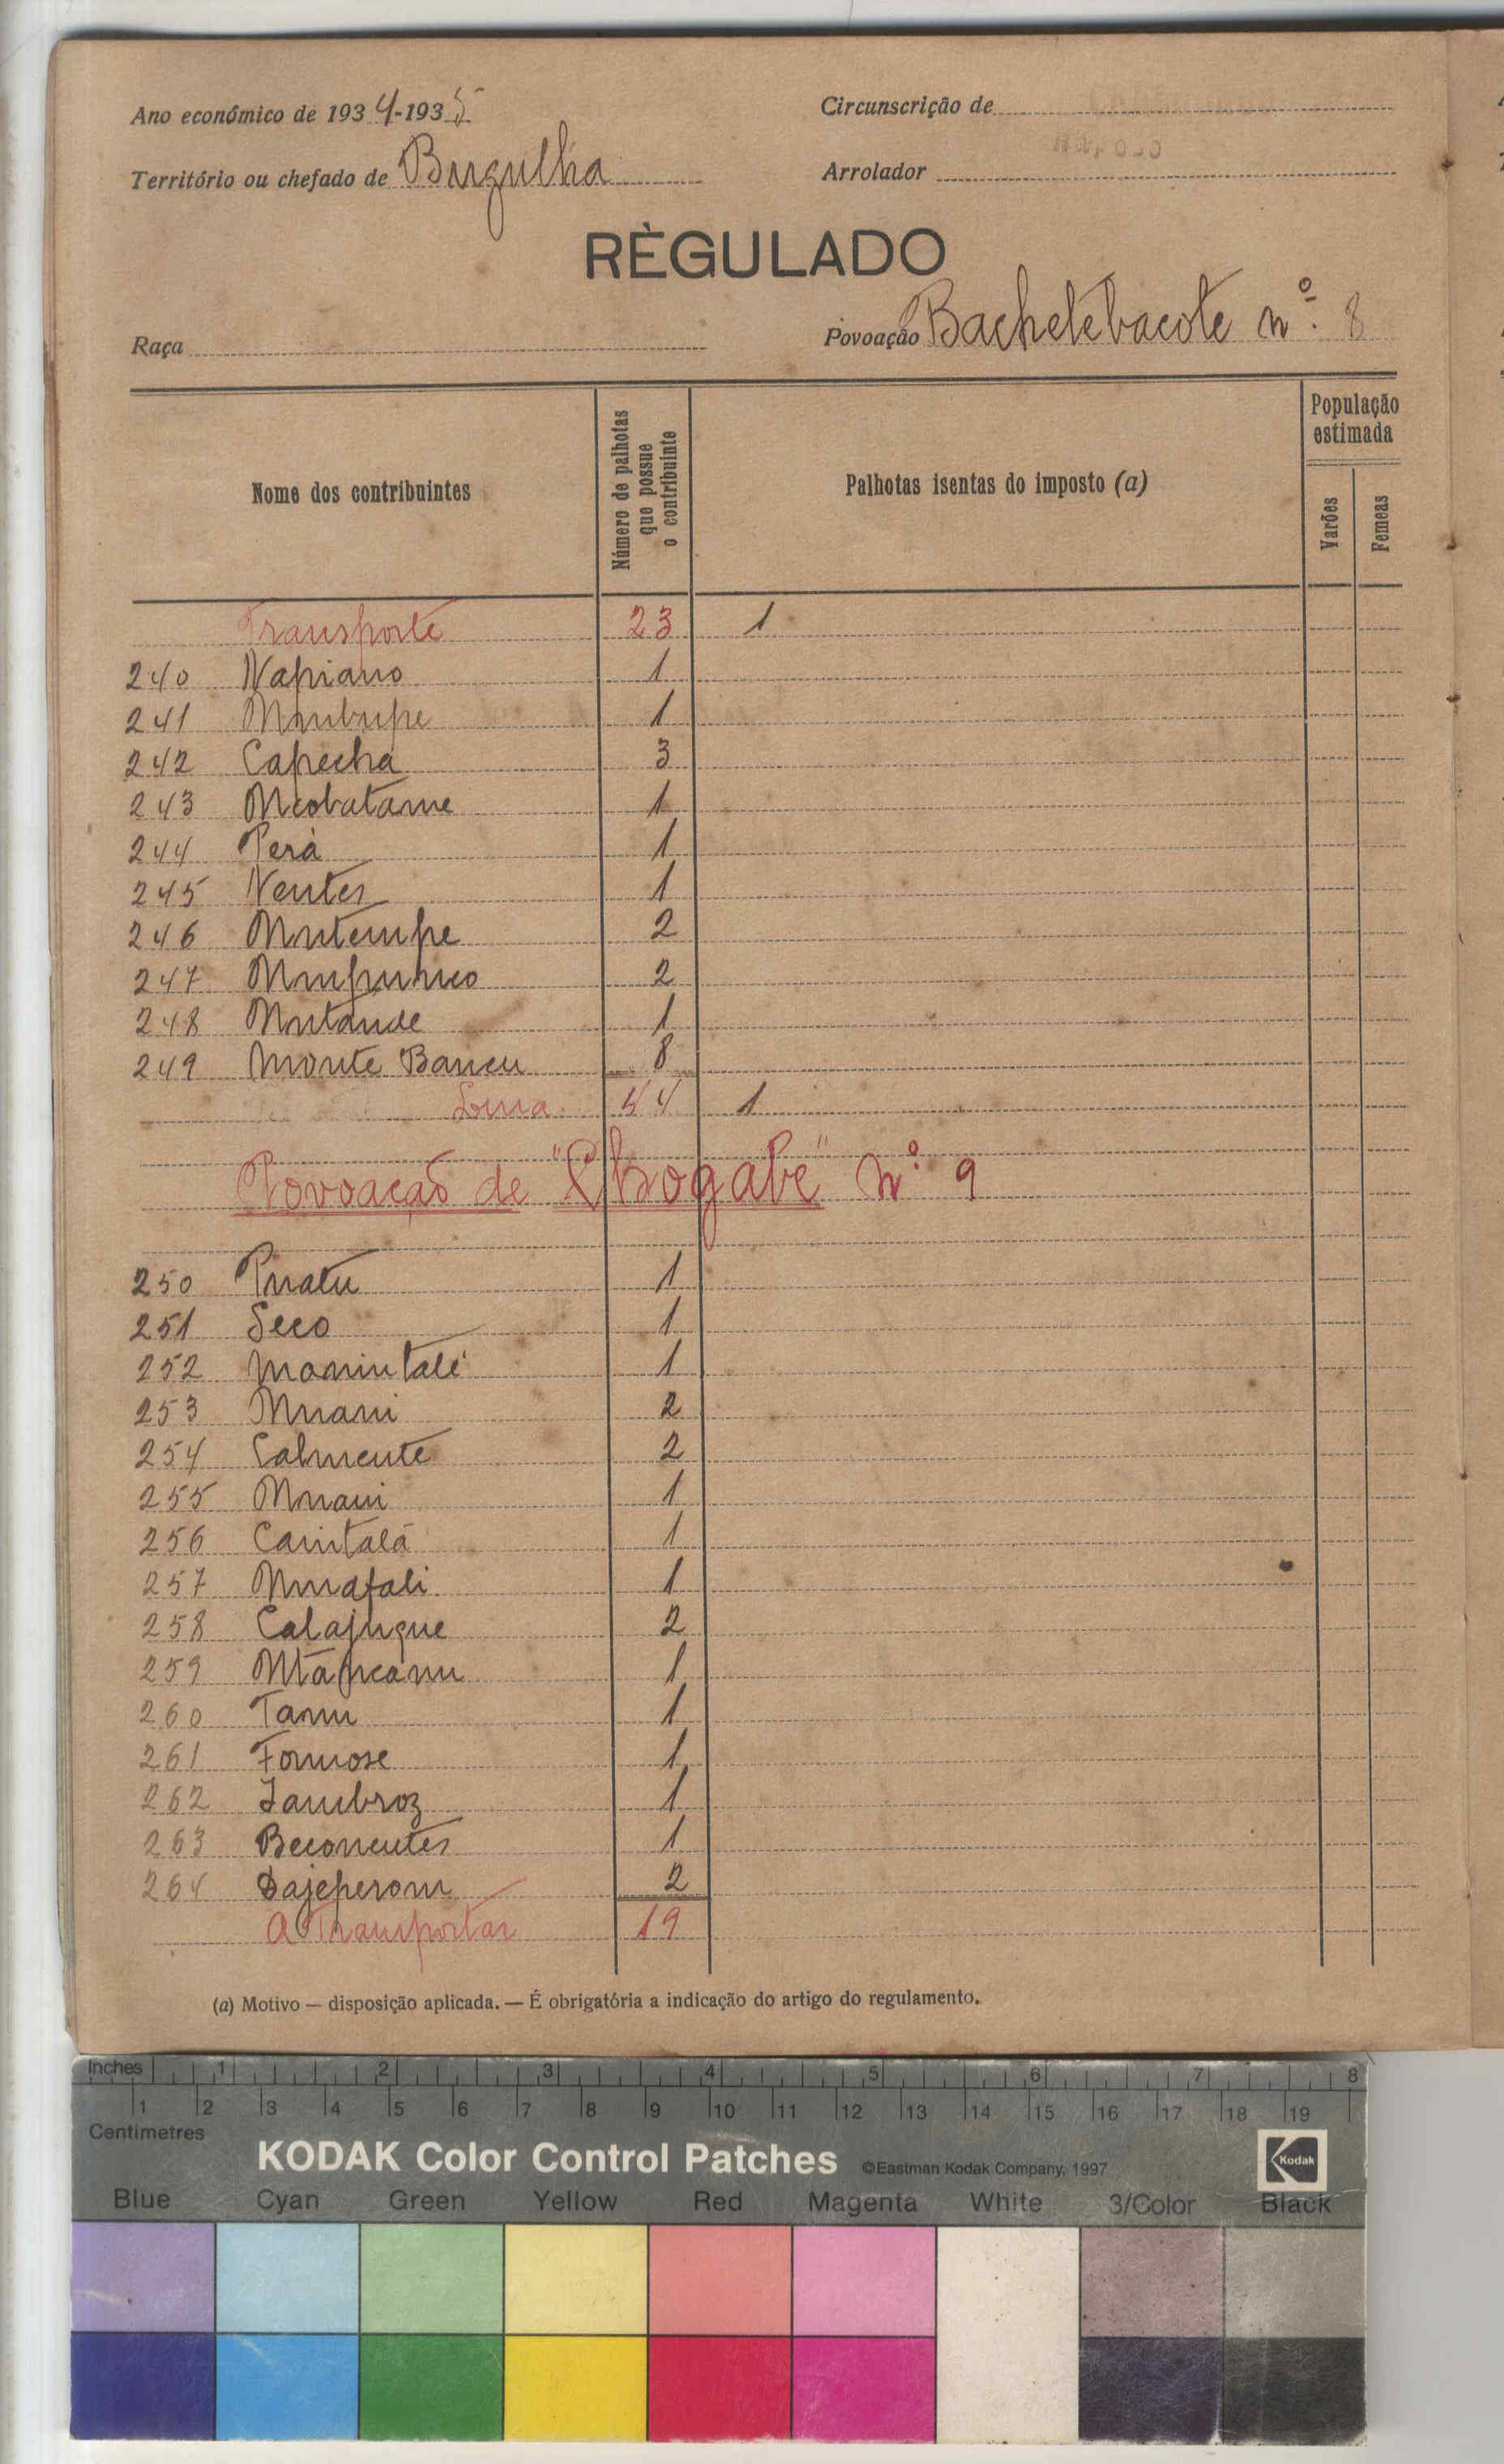 Ano económico de 1934-1935
Circunscrição de
Território ou chefado de Burgulha
Arrolador
RÈGULADO
Raça
Povoação Bachelebacote nº. 8
Nome dos contribuintes
Número de palhotas que possue o contribuinte
Palhotas isentas do imposto (a)
População estimada
Varões
Femeas
Transporte 23 1
240 Napiano 1
241 1
242 Capecha 3
243 Mcobatame 1
244 Perà 1
245 Nentes 1
246 Mutempe 2
247 2
248 Mutande 1
249 Monte Bancu 8
Soma 44 1
Povoação de "Chogabe" Nº 9
250 Puatu 1
251 Seco 1
252 1
253 Muani 2
254 Calmente 2
255 Muani 1
256 Canitala 1
257 Muafali 1
258 Calajuque 2
259 1
260 Tamu 1
261 Formose 1
262 Jambroz 1
263 Beconentes 1
264 Dajeperom 2
A Transportar 19
(a) Motivo — disposição aplicada. — É obrigatória a indicação do artigo do regulamento.
Inches 1 2 3 4 5 6 7 8
1 2 3 4 5 6 7 8 9 10 11 12 13 14 15 16 17 18 19
Centimetres
KODAK Color Control Patches ©Eastman Kodak Company, 1997 Kodak
Blue Cyan Green Yellow Red Magenta White 3/Color Black